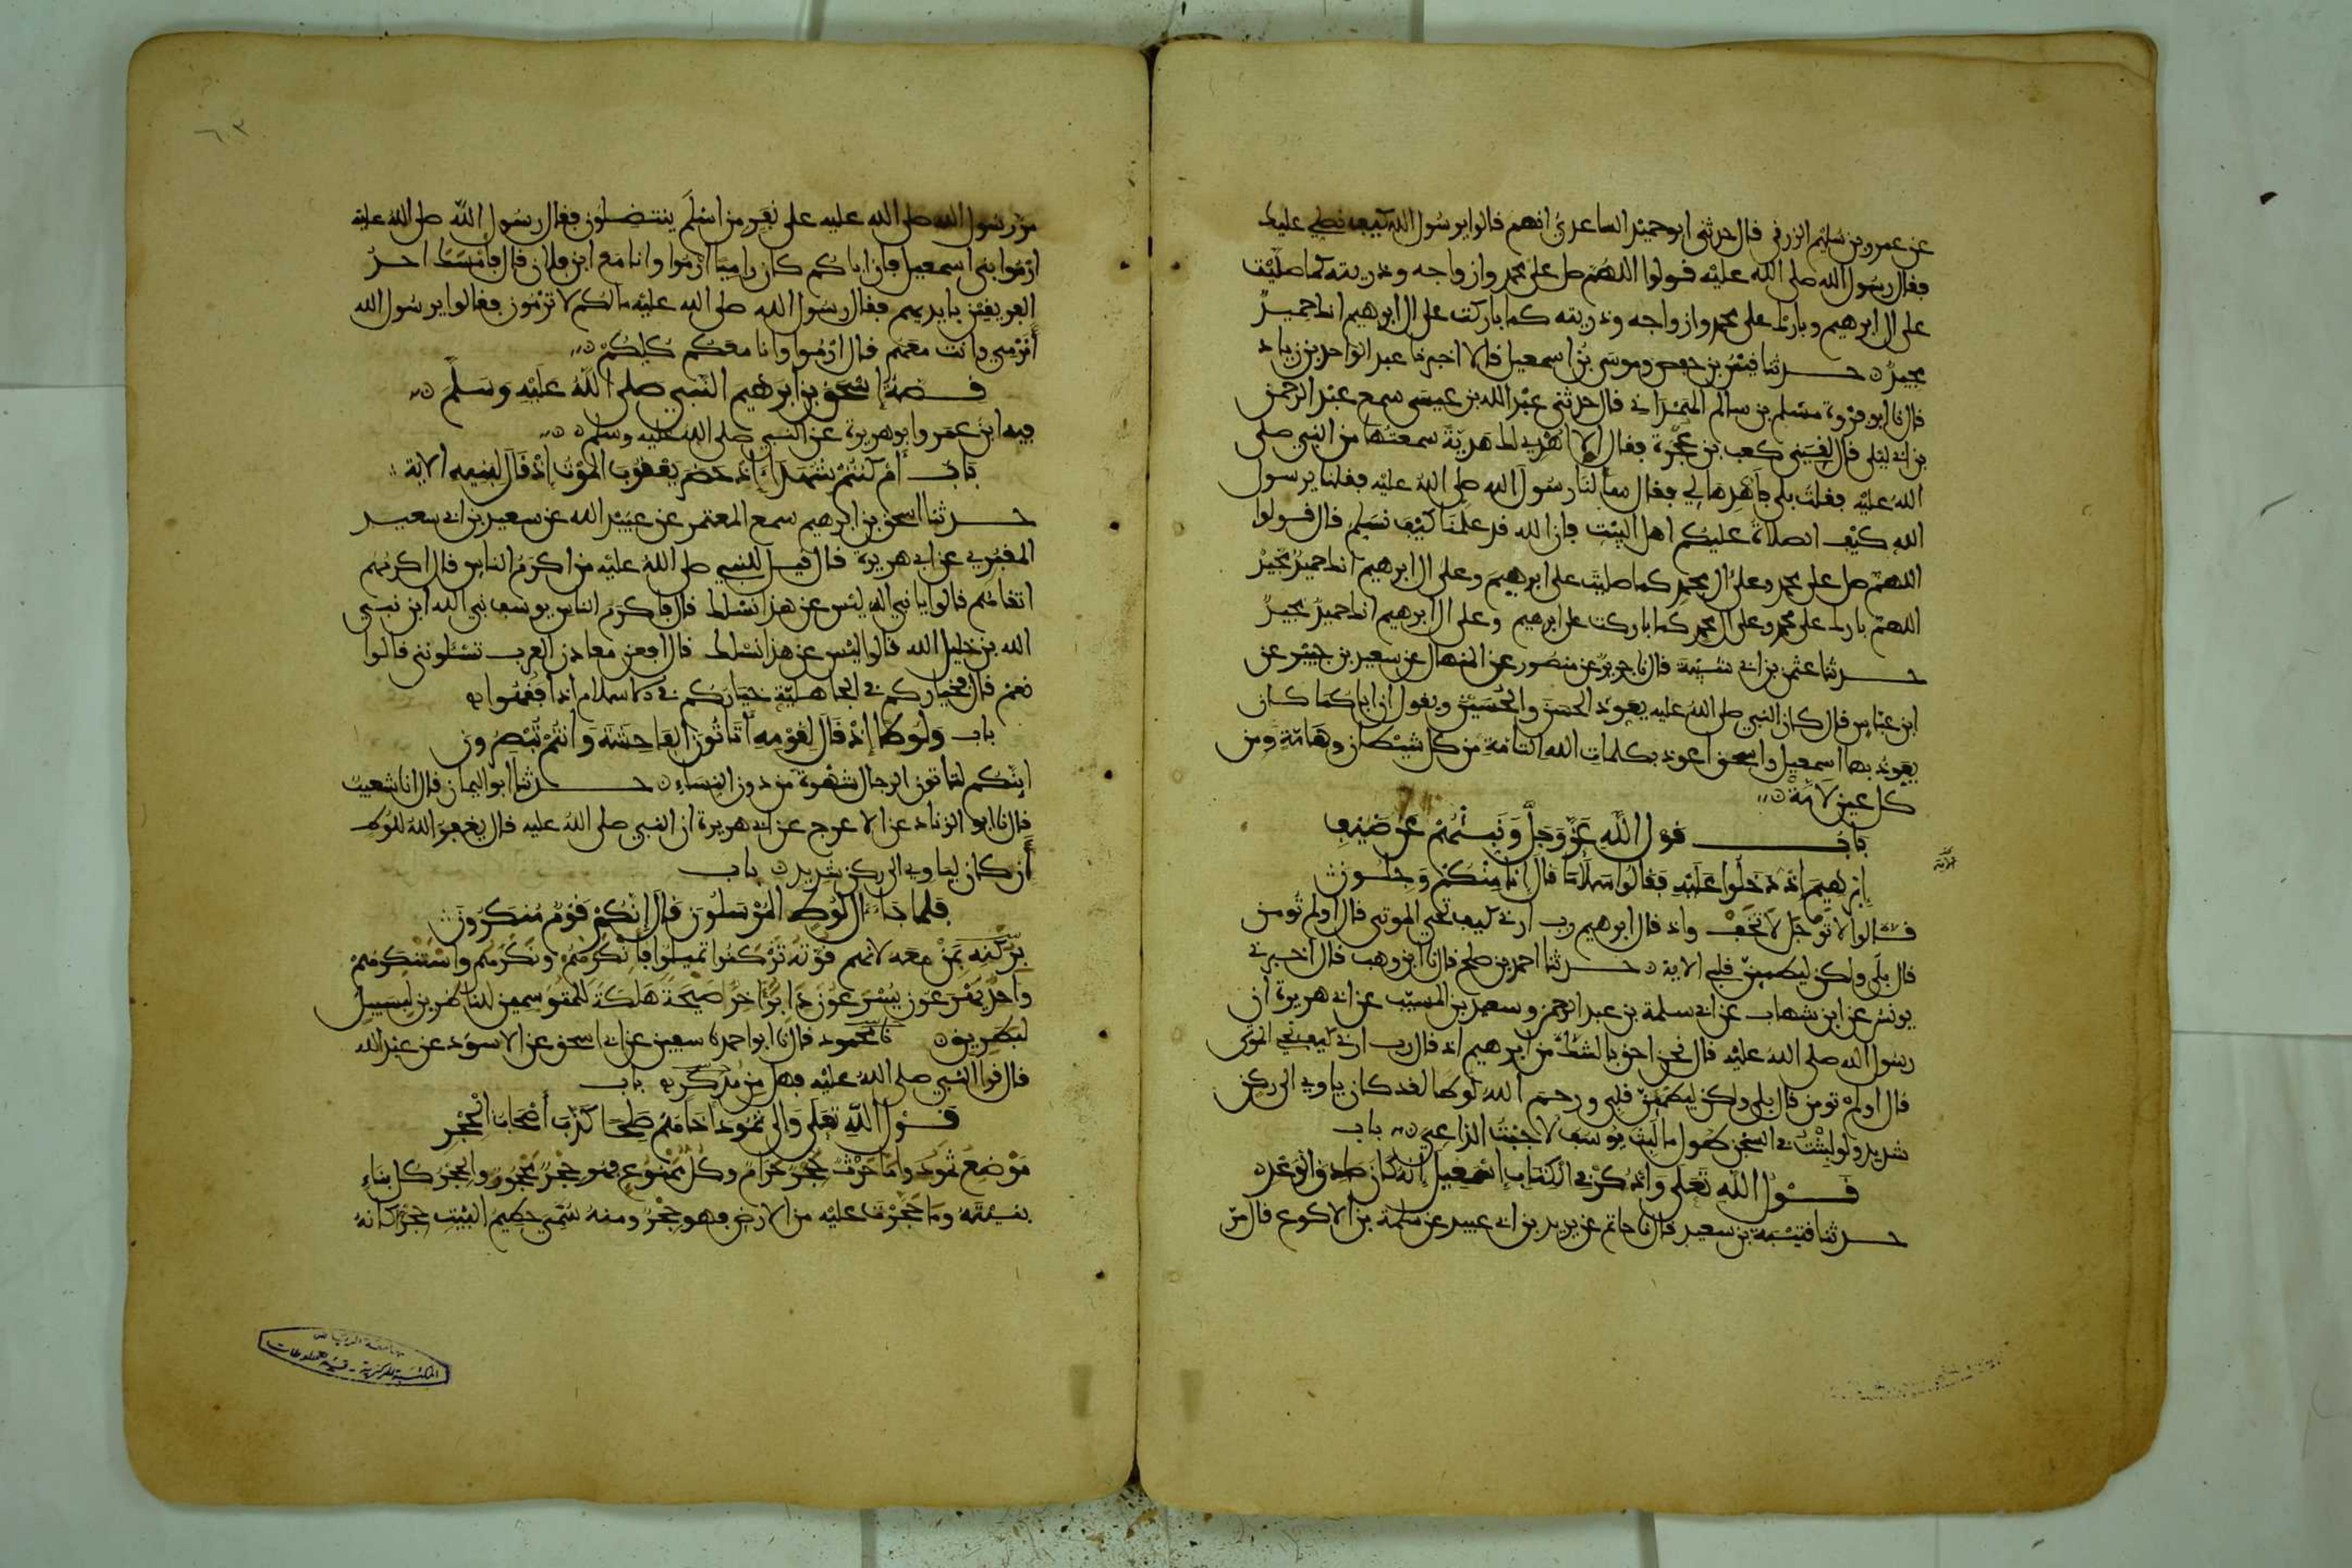 عن عمرو بن سليم الزرقي قال حدثني ابو حميد الساعدي انهم قالوا يرسول الله كيف نصلي عليك
فقال رسول الله صلى الله عليه قولوا اللهم صل على محمد وازواجه وذريته كما صليت
على ال ابرهيم وبارك على محمد وازواجه وذريته كما باركت على ال ابرهيم انك حميد
مجيد حدثنا قيس بن حفص وموسى بن اسمعيل قالا اخبرنا عبد الواحد بن زياد
قال نا ابو فروة مسلم بن سالم الهمداني قال حدثني عبد الله بن عيسى سمع عبد الرحمن
بن ابي ليلى قال لقيني كعب بن عجرة فقال الا اهدي لك هدية سمعتها من النبي صلى
الله عليه فقلت بلى فاهدها لي فقال سألنا رسول الله صلى الله عليه فقلنا يرسول
الله كيف الصلاة عليكم اهل البيت فان الله قد علمنا كيف نسلم قال قولوا
اللهم صل على محمد وعلى ال محمد كما صليت على ابرهيم وعلى ال ابرهيم انك حميد مجيد
اللهم بارك على محمد وعلى ال محمد كما باركت على ابرهيم وعلى ال ابرهيم انك حميد مجيد
حدثنا عثمن بن ابي شيبة قال نا جرير عن منصور عن المنهال عن سعيد بن جبير عن
ابن عباس قال كان النبي صلى الله عليه يعوذ الحسن والحسين ويقول ان اباكما كان
يعوذ بها اسمعيل واسحق اعوذ بكلمات الله التامة من كل شيطان وهامة ومن
كل عين لامة
باب قول الله عز وجل ونبئهم عن ضيف
ابرهيم اذ دخلوا عليه فقالوا سلاما قال انا منكم وجلون
الاية
قالوا لا توجل لا تخف واذ قال ابرهيم رب ارني كيف تحي الموتى قال اولم تومن
قال بلى ولكن ليطمين قلبي الاية حدثنا احمد بن صلح قال نا ابن وهب قال اخبرني
يونس عن ابن شهاب عن ابي سلمة بن عبد الرحمن وسعيد بن المسيب عن ابي هريرة ان
رسول الله صلى الله عليه قال نحن احق بالشك من ابرهيم اذ قال رب ارني كيف تحي الموتى
قال اولم تومن قال بلى ولكن ليطمين قلبي ورحم الله لوطا لقد كان ياوي الى ركن
شديد ولو لبثت في السجن طول ما لبث يوسف لاجبت الداعي باب
قول الله تعلى واذكر في الكتاب اسمعيل انه كان صادق الوعد
حدثنا قتيبة بن سعيد قال نا حاتم عن يزيد بن ابي عبيد عن سلمة بن الاكوع قال مر
٦٠٣
مر رسول الله صلى الله عليه على نفر من اسلم ينتضلون فقال رسول الله صلى الله عليه
ارموا بني اسمعيل فان اباكم كان راميا ارموا وانا مع ابن فلان قال فامسك احد
الفريقين بايديهم فقال رسول الله صلى الله عليه ما لكم لا ترمون فقالوا يرسول الله
انرمي وانت معهم قال ارموا وانا معكم كلكم
قصة اسحق بن ابرهيم النبي صلى الله عليه وسلم
فيه ابن عمر وابو هريرة عن النبي صلى الله عليه وسلم
باب أم كنتم شهداء إذ حضر يعقوب الموت إذ قال لبنيه الاية
حدثنا اسحق بن ابرهيم سمع المعتمر عن عبيد الله عن سعيد بن ابي سعيد
المقبري عن ابي هريرة قال قيل للنبي صلى الله عليه من اكرم الناس قال اكرمهم
اتقاهم قالوا يا نبي الله ليس عن هذا نسلك قال فاكرم الناس يوسف نبي الله ابن نبي
الله بن خليل الله قالوا ليس عن هذا نسلك قال افعن معادن العرب تسئلونني قالوا
نعم قال فخياركم في الجاهلية خياركم في الاسلام اذا فقهوا
باب ولوطا إذ قال لقومه أتاتون الفاحشة وأنتم تبصرون
اينكم لتاتون الرجال شهوة من دون النساء حدثنا ابو اليمان قال انا شعيب
قال نا ابو الزناد عن الاعرج عن ابي هريرة ان النبي صلى الله عليه قال يغفر الله للوط
أن كان لياوي الى ركن شديد باب
فلما جاء ال لوط المرسلون قال إنكم قوم منكرون
بركنه بمن معه لانهم قوته تركنوا تميلوا فانكرهم ونكرهم واستنكرهم
واحد يهرعون يسرعون دابر اخر صيحة هلكة للمتوسمين للناظرين لبسبيل
لبطريق نا محمود قال نا ابو احمد نا سفين عن ابي اسحق عن الاسود عن عبد الله
قال قرا النبي صلى الله عليه فهل من مدكر باب
قول الله تعلى والى ثمود أخاهم صلحا كذب أصحاب الحجر
موضع ثمود واما حرث حجر حرام وكل ممنوع فهو حجر محجور والحجر كل بناء
بنيته وما حجرت عليه من الارض فهو حجر ومنه سمي حطيم البيت حجرا كانه
جامعة الرياض
المكتبة المركزية - قسم المخطوطات